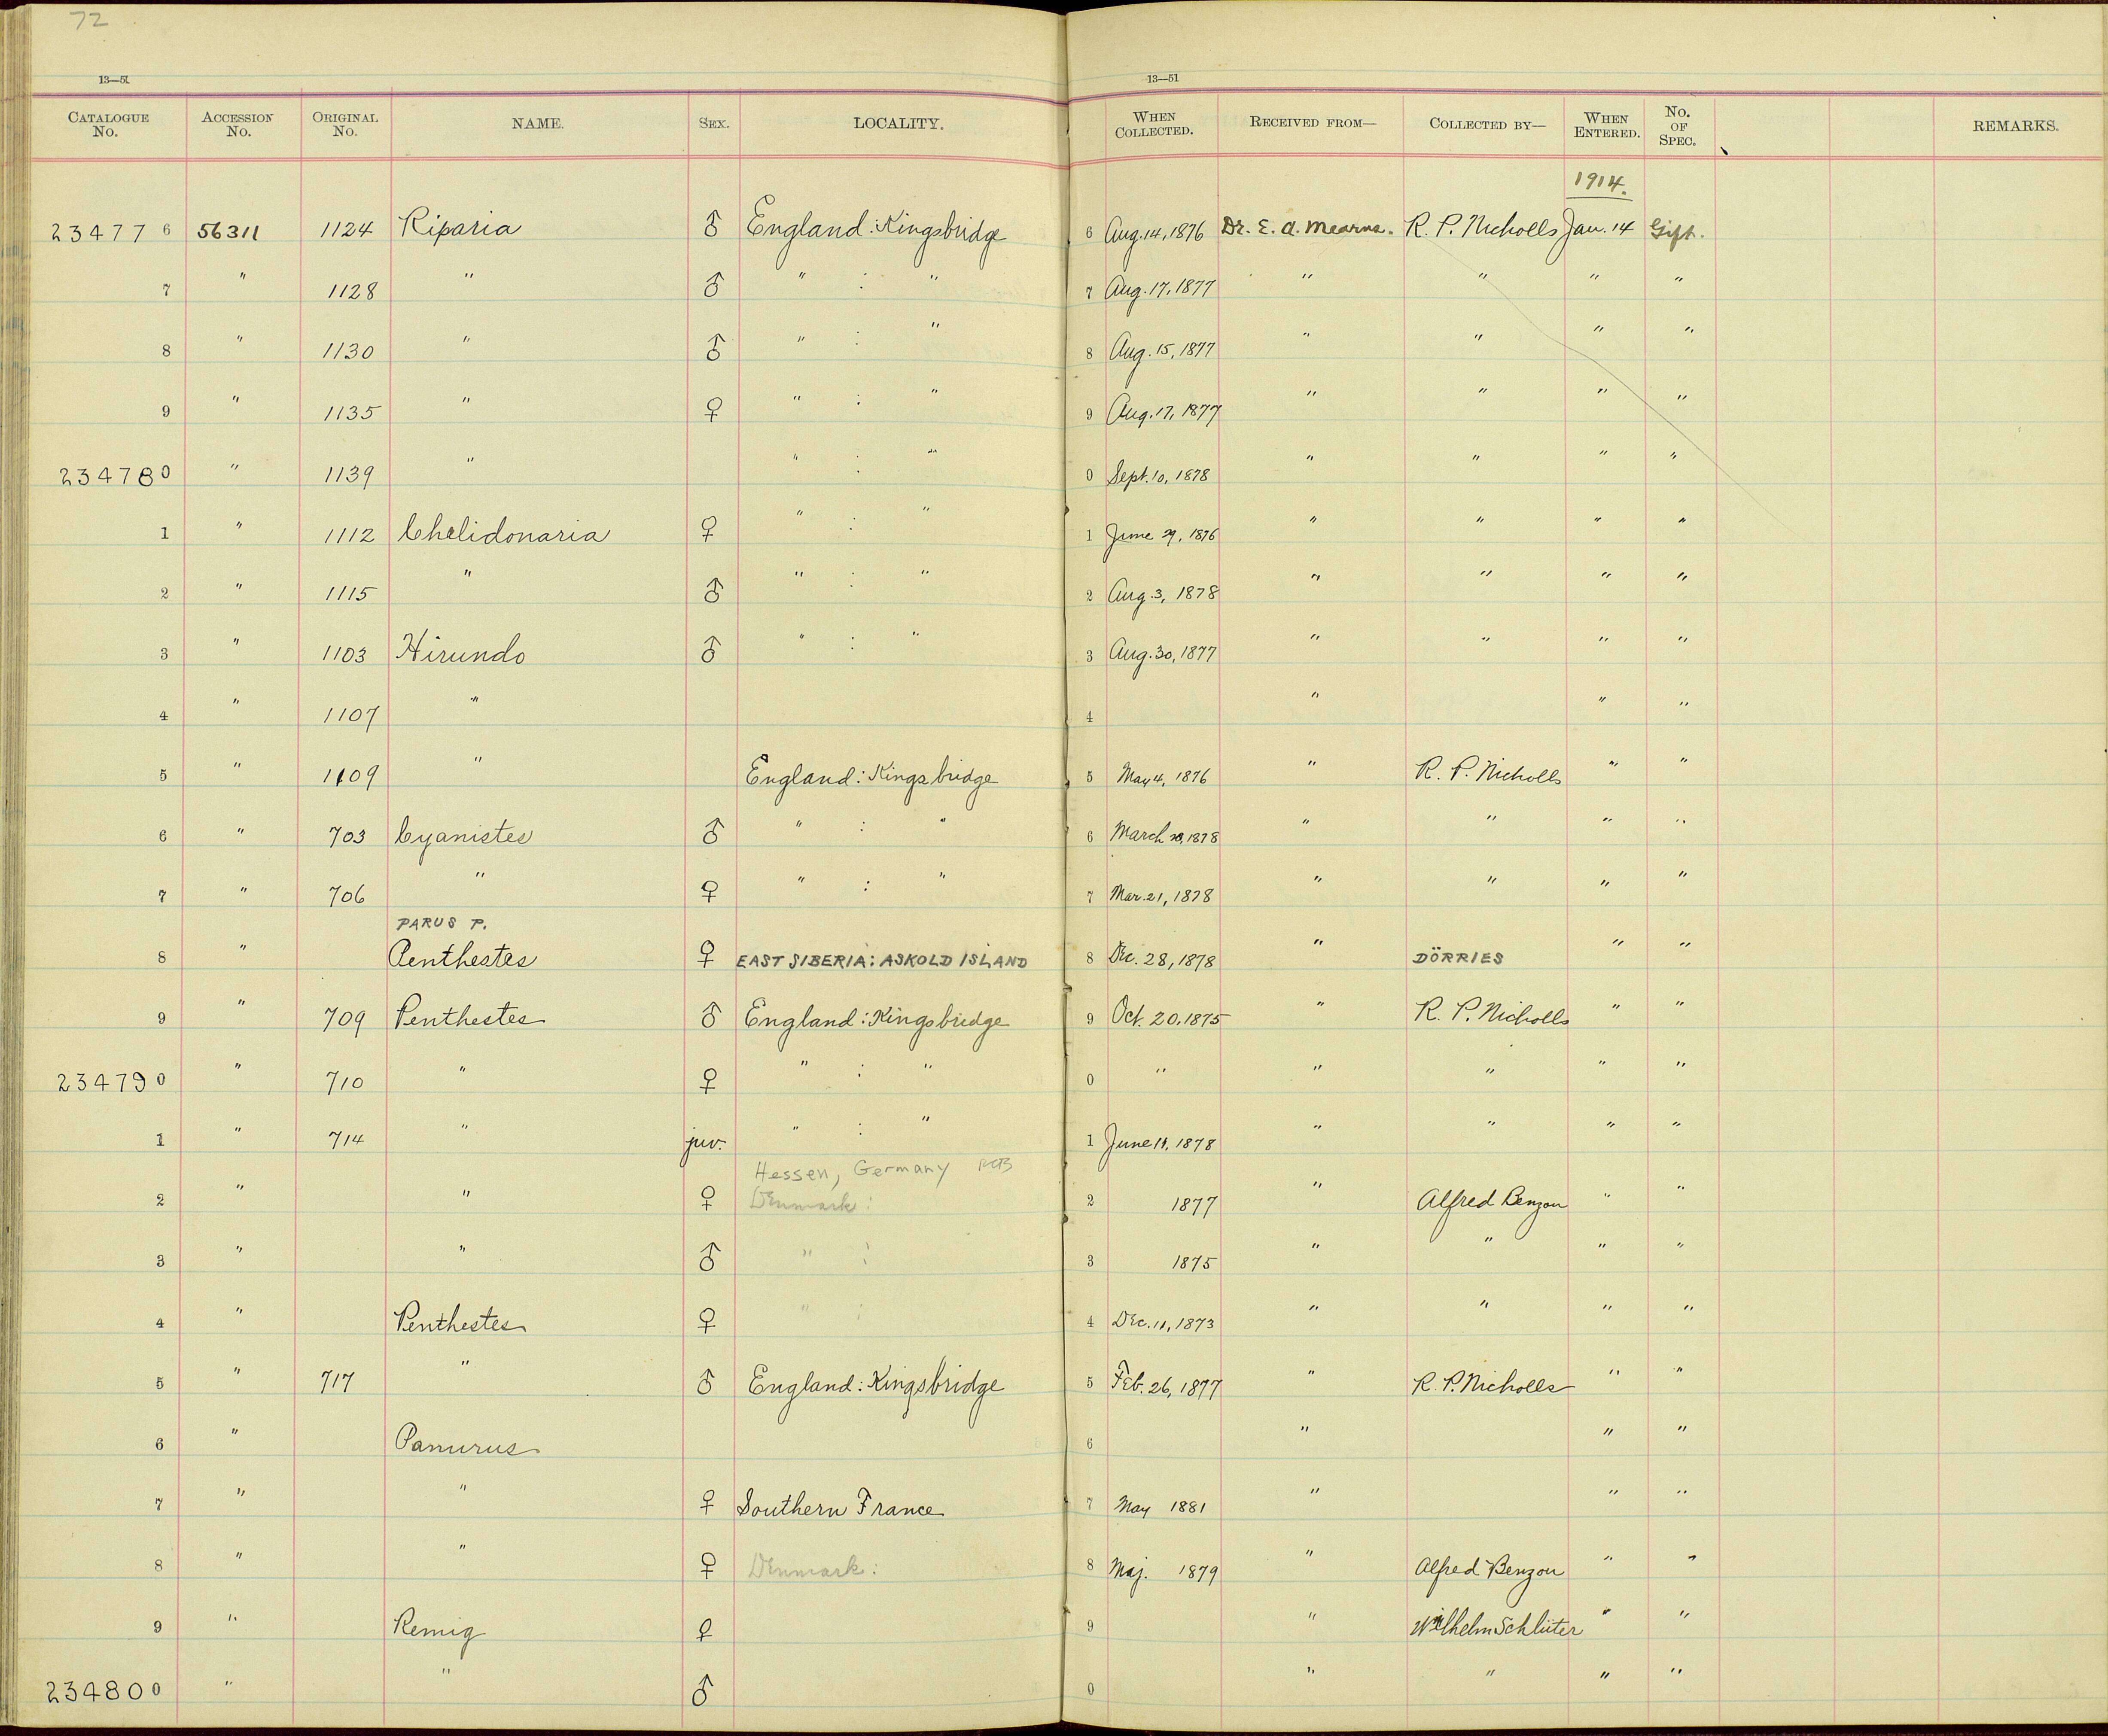 72
13—51 13—51
CATALOGUE NO. ACCESSION NO. ORIGINAL NO. NAME. SEX. LOCALITY. WHEN COLLECTED. RECEIVED FROM— COLLECTED BY— WHEN ENTERED. NO. OF SPEC. REMARKS.
1914.
234776 56311 1124 Riparia ♂ England: Kingsbridge 6 Aug. 14, 1876 Dr. E. A. Mearns. R. P. Nicholls Jan. 14 Gift.
7 " 1128 " ♂ " : " 7 Aug. 17, 1877 " " " "
8 " 1130 " ♂ " : " 8 Aug. 15, 1877 " " " "
9 " 1135 " ♀ " : " 9 Aug. 17, 1877 " " " "
234780 " 1139 " " : " 0 Sept. 10, 1878 " " " "
1 " 1112 Chelidonaria ♀ " : " 1 June 29, 1876 " " " "
2 " 1115 " ♂ " : " 2 Aug. 3, 1878 " " " "
3 " 1103 Hirundo ♂ " : " 3 Aug. 30, 1877 " " " "
4 " 1107 " 4 " " "
5 " 1109 " England: Kingsbridge 5 May 4, 1876 " R. P. Nicholls " "
6 " 703 Cyanistes ♂ " : " 6 March 1878 " " " "
7 " 706 " ♀ " : " 7 Mar. 21, 1878 " " " "
PARUS P.
8 " Penthestes ♀ EAST SIBERIA: ASKOLD ISLAND 8 Dec. 28, 1878 " DÖRRIES " "
9 " 709 Penthestes ♂ England: Kingsbridge 9 Oct. 20, 1875 " R. P. Nicholls " "
234790 " 710 " ♀ " : " 0 " " " " "
1 " 714 " juv. " : " 1 June 11, 1878 " " " "
Hessen, Germany
2 " " ♀ Denmark: 2 1877 " Alfred Benzon " "
3 " " ♂ " : 3 1875 " " " "
4 " Penthestes ♀ " : 4 Dec. 11, 1873 " " " "
5 " 717 " ♂ England: Kingsbridge 5 Feb. 26, 1877 " R. P. Nicholls " "
6 " Panurus 6 " " "
7 " " ♀ Southern France 7 May 1881 " " "
8 " " ♀ Denmark: 8 Maj. 1879 " Alfred Benzon " "
9 " Remig ♀ 9 " Wilhelm Schlüter " "
234800 " " ♂ 0 " " " "